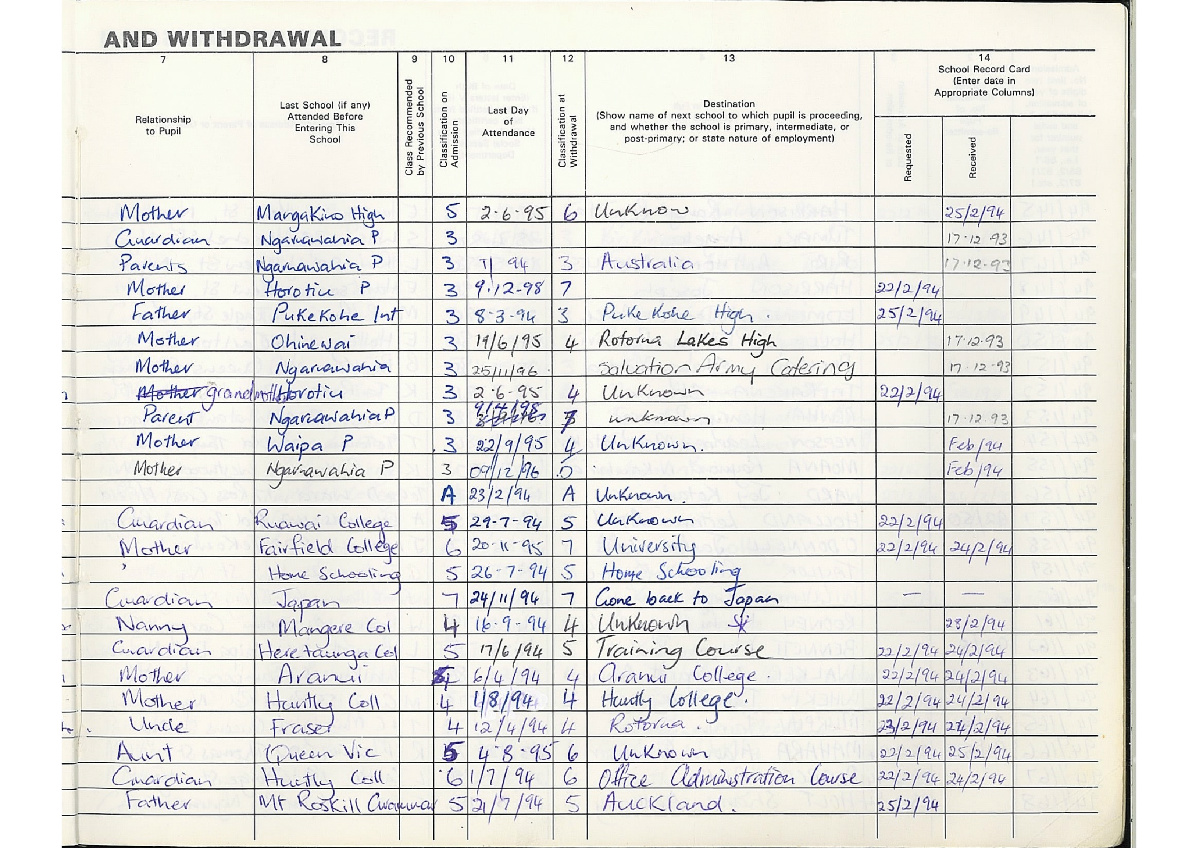 AND WITHDRAWAL
7 8 9 10 11 12 13 14
Relationship to Pupil
Last School (if any) Attended Before Entering This School
Class Recommended by Previous School
Classification on Admission
Last Day of Attendance
Classification at Withdrawal
Destination
(Show name of next school to which pupil is proceeding, and whether the school is primary, intermediate, or post-primary; or state nature of employment)
School Record Card (Enter date in Appropriate Columns)
Requested
Received
Mother MargaKino High 5 2-6-95 6 UnKnow 25/2/94
Guardian Ngaruawahia P 3 17-12-93
Parents Ngaruawahia P 3 94 3 Australia 17-12-93
Mother Horotiu P 3 9.12-98 7 22/2/94
Father PukeKohe Int 3 8-3-94 3 Puke Kohe High. 25/2/94
Mother Ohinewai 3 19/6/95 4 Rotorua Lakes High 17-12-93
Mother Ngaruawahia 3 25/11/96 Salvation Army Catering 17-12-93
Mother grandmother Horotiu 3 2-6-95 4 UnKnown 22/2/94
Parent Ngaruawahia P 3 unknown 17-12-93
Mother Waipa P 3 22/9/95 4 UnKnown. Feb/94
Mother Ngaruawahia P 3 09/12/96 Feb/94
A 23/2/94 A UnKnown.
Guardian Ruawai College 5 29-7-94 5 UnKnown 22/2/94
Mother Fairfield College 6 20-11-95 7 University 22/2/94 24/2/94
Home Schooling 5 26-7-94 5 Home Schooling
Guardian Japan 7 24/11/94 7 Gone back to Japan — —
Nanny Mangere Col 4 16-9-94 4 UnKnown 23/2/94
Guardian Heretaunga Col 5 17/6/94 5 Training Course 22/2/94 24/2/94
Mother Aranui 6/4/94 4 Aranui College. 22/2/94 24/2/94
Mother Huntly Coll 4 1/8/94 4 Huntly College. 22/2/94 24/2/94
Uncle Fraser 4 12/4/94 4 Rotorua. 23/2/94 24/2/94
Aunt Queen Vic 5 4-8-95 6 UnKnown 22/2/94 25/2/94
Guardian Huntly Coll 6 1/7/94 6 Office Administration Course 22/2/94 24/2/94
Father Mt Roskill Grammar 5 21/7/94 5 Auckland. 25/2/94